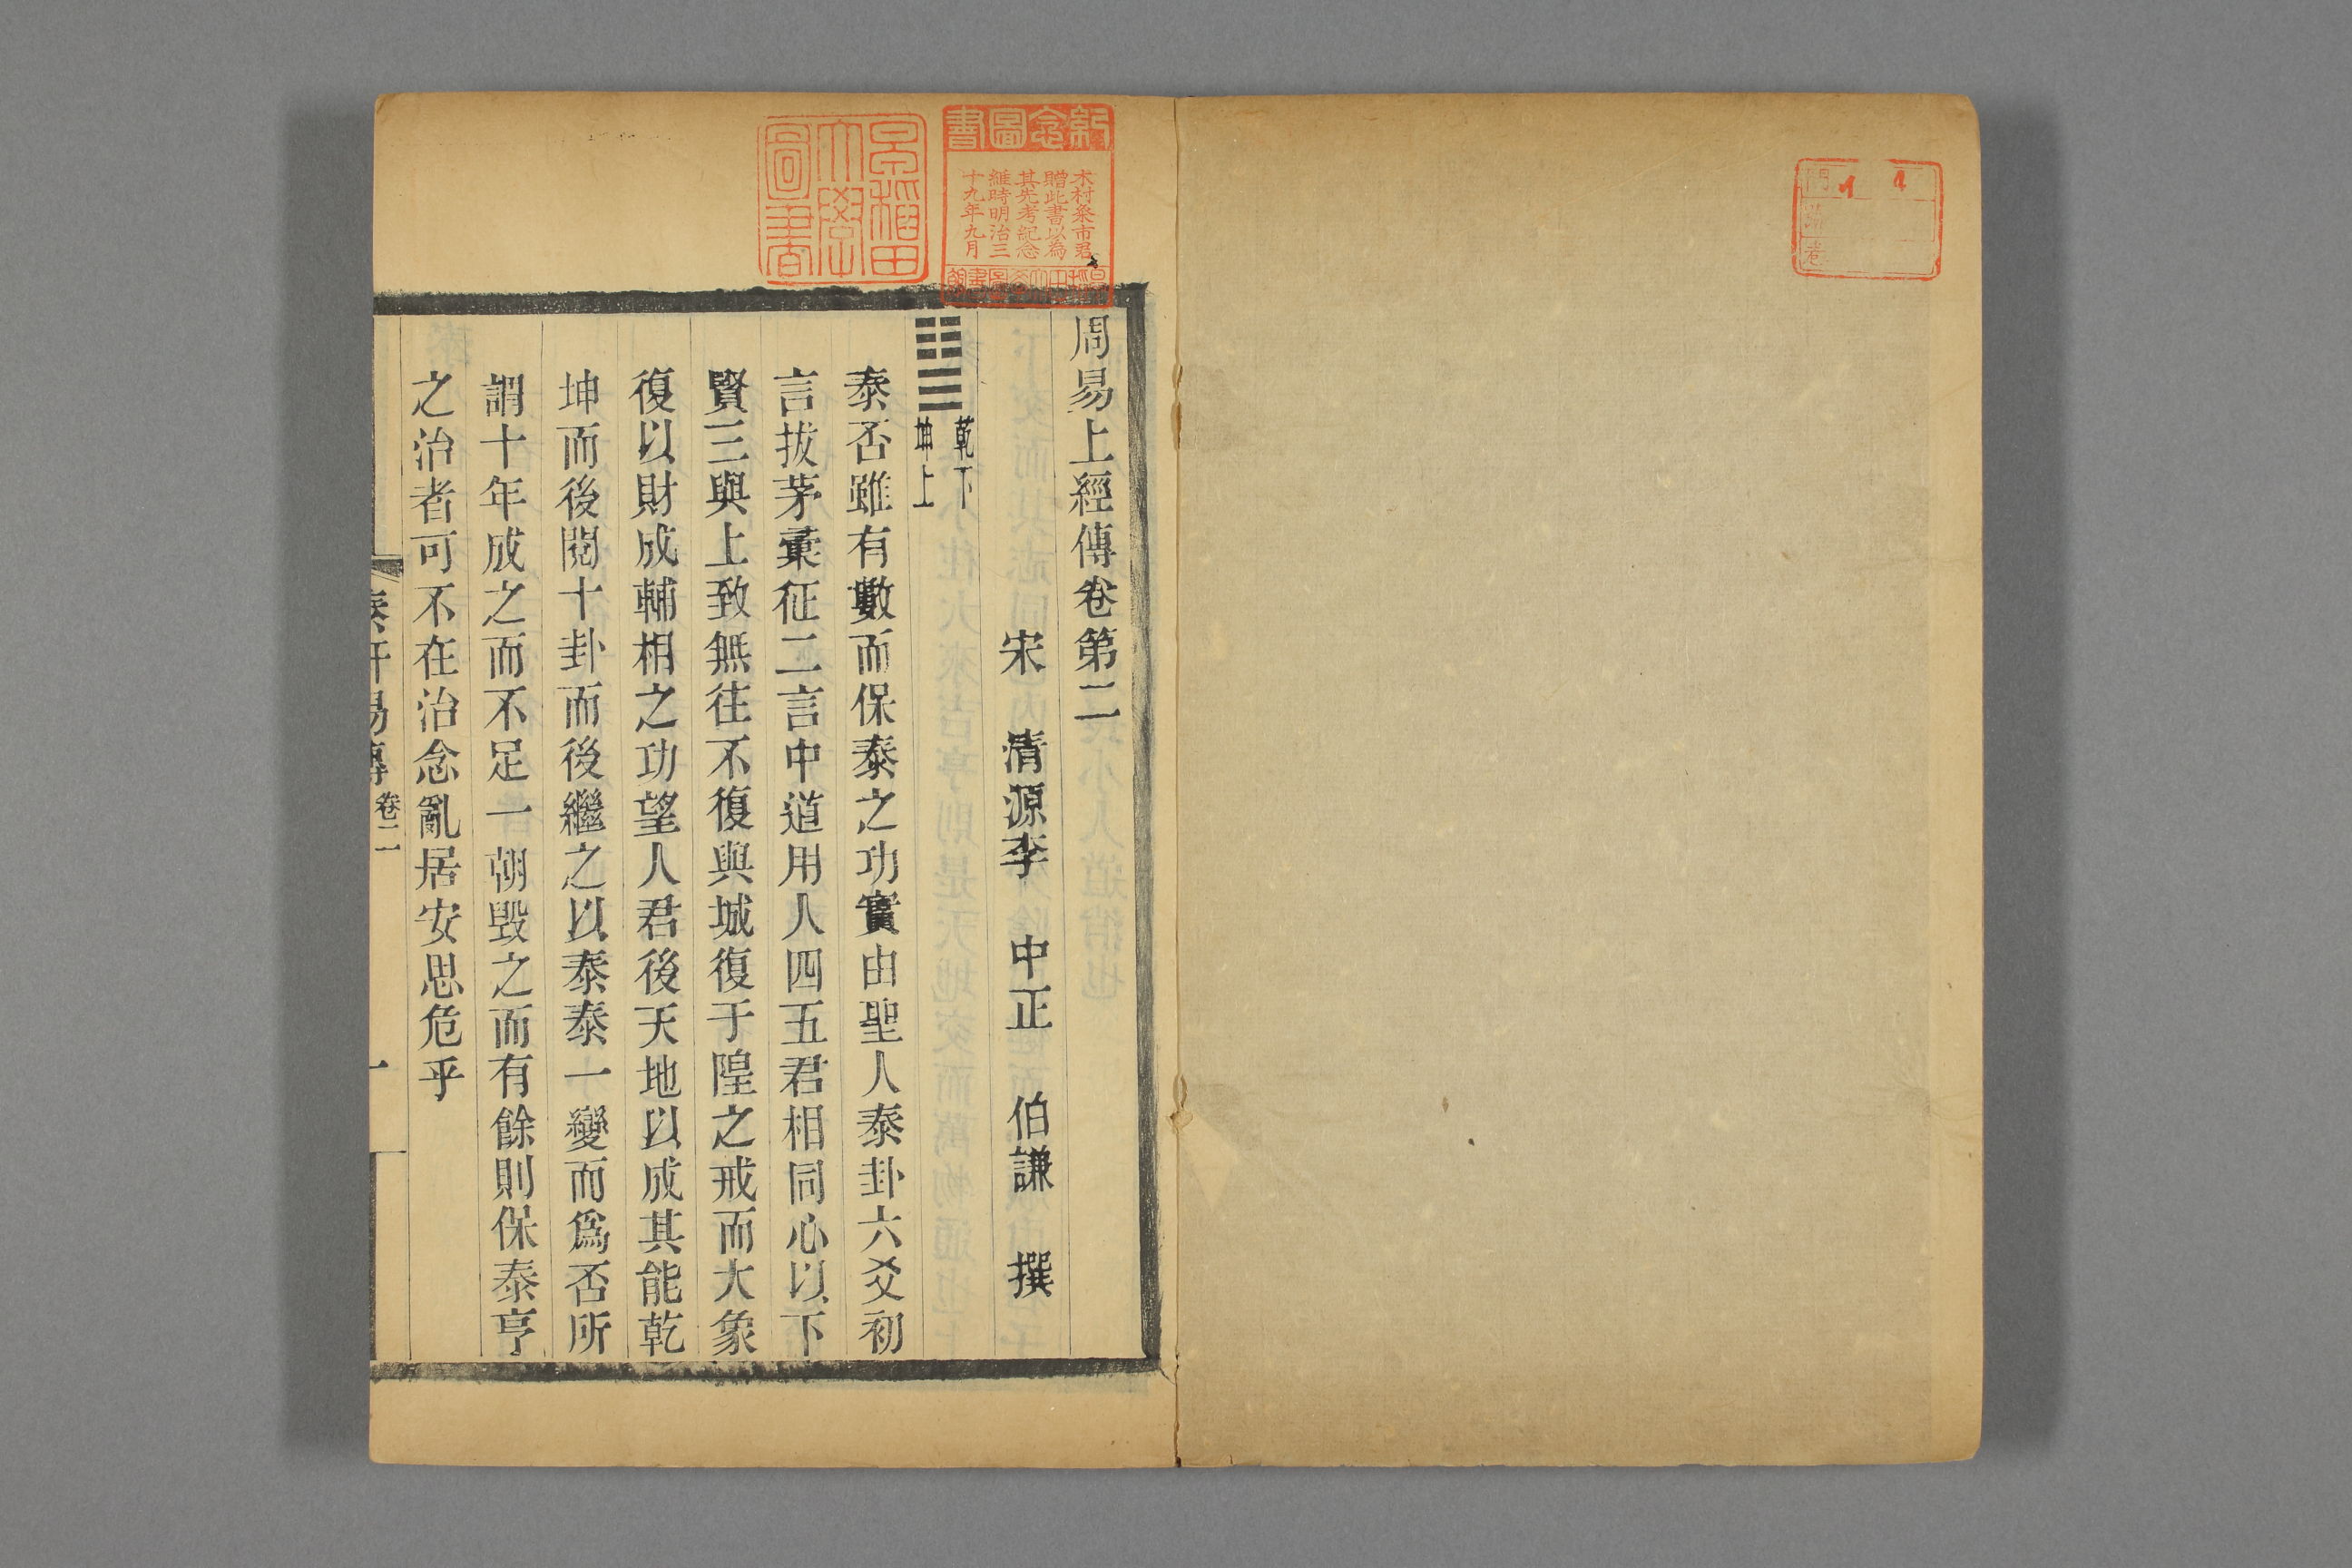 門
號
卷
紀念圖書
木村粂市君
贈此書以為
其先考紀念
維時明治三
十九年九月
早稻田大學圖書
周易上經傳卷第二
宋 清源李 中正 伯謙 撰
䷊
乾下
坤上
泰否雖有數而保泰之功實由聖人泰卦六爻初
言拔茅彙征二言中道用人四五君相同心以下
賢三與上致無往不復與城復于隍之戒而大象
復以財成輔相之功望人君後天地以成其能乾
坤而後閱十卦而後繼之以泰泰一變而爲否所
謂十年成之而不足一朝毀之而有餘則保泰亨
之治者可不在治念亂居安思危乎
泰軒易傳 卷二 一